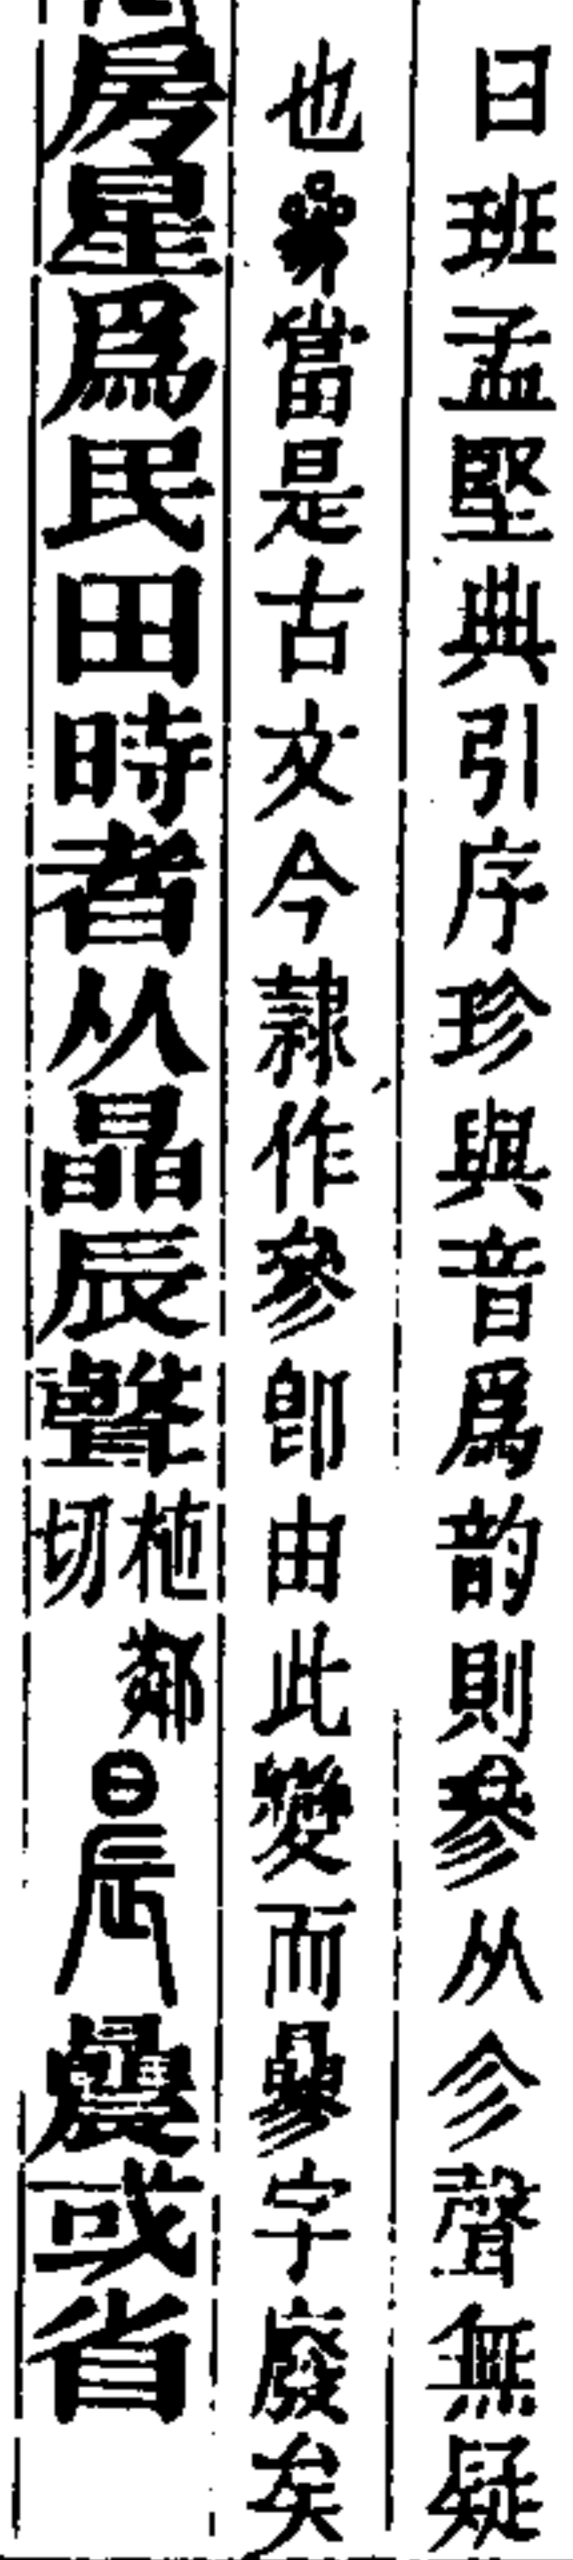 曰班孟堅典引序珍與音爲韵則參从㐱聲無疑
也當是古文今隸作參卽由此變而曑字廢矣
房星爲民田時者从晶辰聲植鄰切晨曟或省